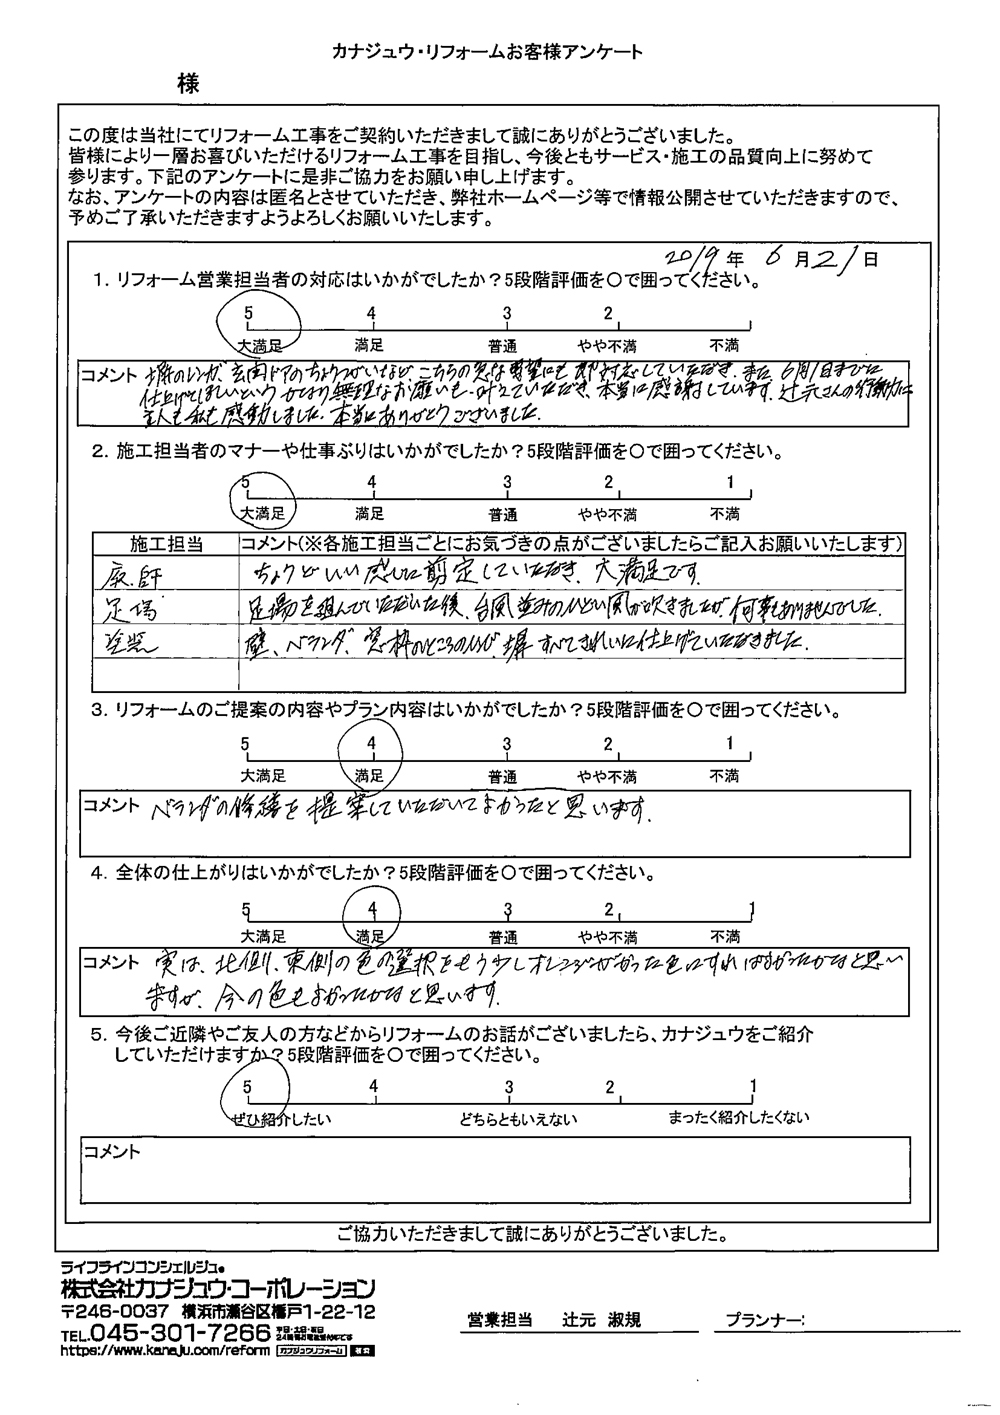 カナジュウ・リフォームお客様アンケート
様
この度は当社にてリフォーム工事をご契約いただきまして誠にありがとうございました。
皆様により一層お喜びいただけるリフォーム工事を目指し、今後ともサービス・施工の品質向上に努めて
参ります。下記のアンケートに是非ご協力をお願い申し上げます。
なお、アンケートの内容は匿名とさせていただき、弊社ホームページ等で情報公開させていただきますので、
予めご了承いただきますようよろしくお願いいたします。
2019年 6月21日
1. リフォーム営業担当者の対応はいかがでしたか？5段階評価を○で囲ってください。
5 4 3 2
大満足 満足 普通 やや不満 不満
コメント 塀のレンガ、玄関ドアのちょうつがいなど、こちらの急な要望にも即対応していただき、また6月1日までに
仕上げてほしいというかなり無理なお願いも叶えていただき、本当に感謝しています。辻元さんの行動力に
主人も私も感動しました。本当にありがとうございました。
2. 施工担当者のマナーや仕事ぶりはいかがでしたか？5段階評価を○で囲ってください。
5 4 3 2 1
大満足 満足 普通 やや不満 不満
施工担当 コメント(※各施工担当ごとにお気づきの点がございましたらご記入お願いいたします)
庭師 ちょうどいい感じに剪定していただき、大満足です。
足場 足場を組んでいただいた後、台風並みのひどい風が吹きましたが、何事もありませんでした。
塗装 壁、ベランダ、窓枠のところのひび、塀すべてきれいに仕上げていただきました。
3. リフォームのご提案の内容やプラン内容はいかがでしたか？5段階評価を○で囲ってください。
5 4 3 2 1
大満足 満足 普通 やや不満 不満
コメント ベランダの修繕を提案していただいてよかったと思います。
4. 全体の仕上がりはいかがでしたか？5段階評価を○で囲ってください。
5 4 3 2 1
大満足 満足 普通 やや不満 不満
コメント 実は、北側、東側の色の選択をもう少しオレンジがかった色にすればよかったかなと思い
ますが、今の色もよかったかなと思います。
5. 今後ご近隣やご友人の方などからリフォームのお話がございましたら、カナジュウをご紹介
していただけますか？5段階評価を○で囲ってください。
5 4 3 2 1
ぜひ紹介したい どちらともいえない まったく紹介したくない
コメント
ご協力いただきまして誠にありがとうございました。
ライフラインコンシェルジュ®
株式会社カナジュウ・コーポレーション
〒246-0037 横浜市瀬谷区橋戸1-22-12
TEL.045-301-7266 平日・土日・祝日 24時間お電話受付中です
https://www.kanaju.com/reform カナジュウリフォーム 検索
営業担当 辻元 淑規 プランナー: